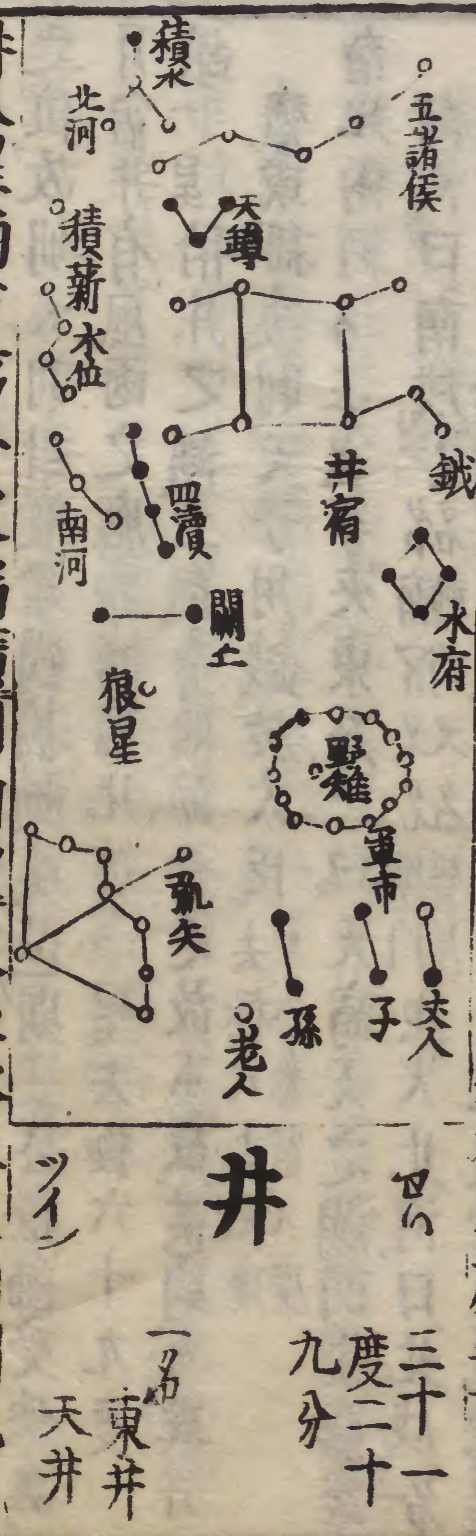 五諸侯
積水
北河
天鐏
積薪
水位
鉞
井宿
四瀆
南河
水府
闕丘
狼星
野雉
軍市
弧矢
丈人
子
孫
老人
井
ツイン
三十一
度二十
九分
一名
東井
天井